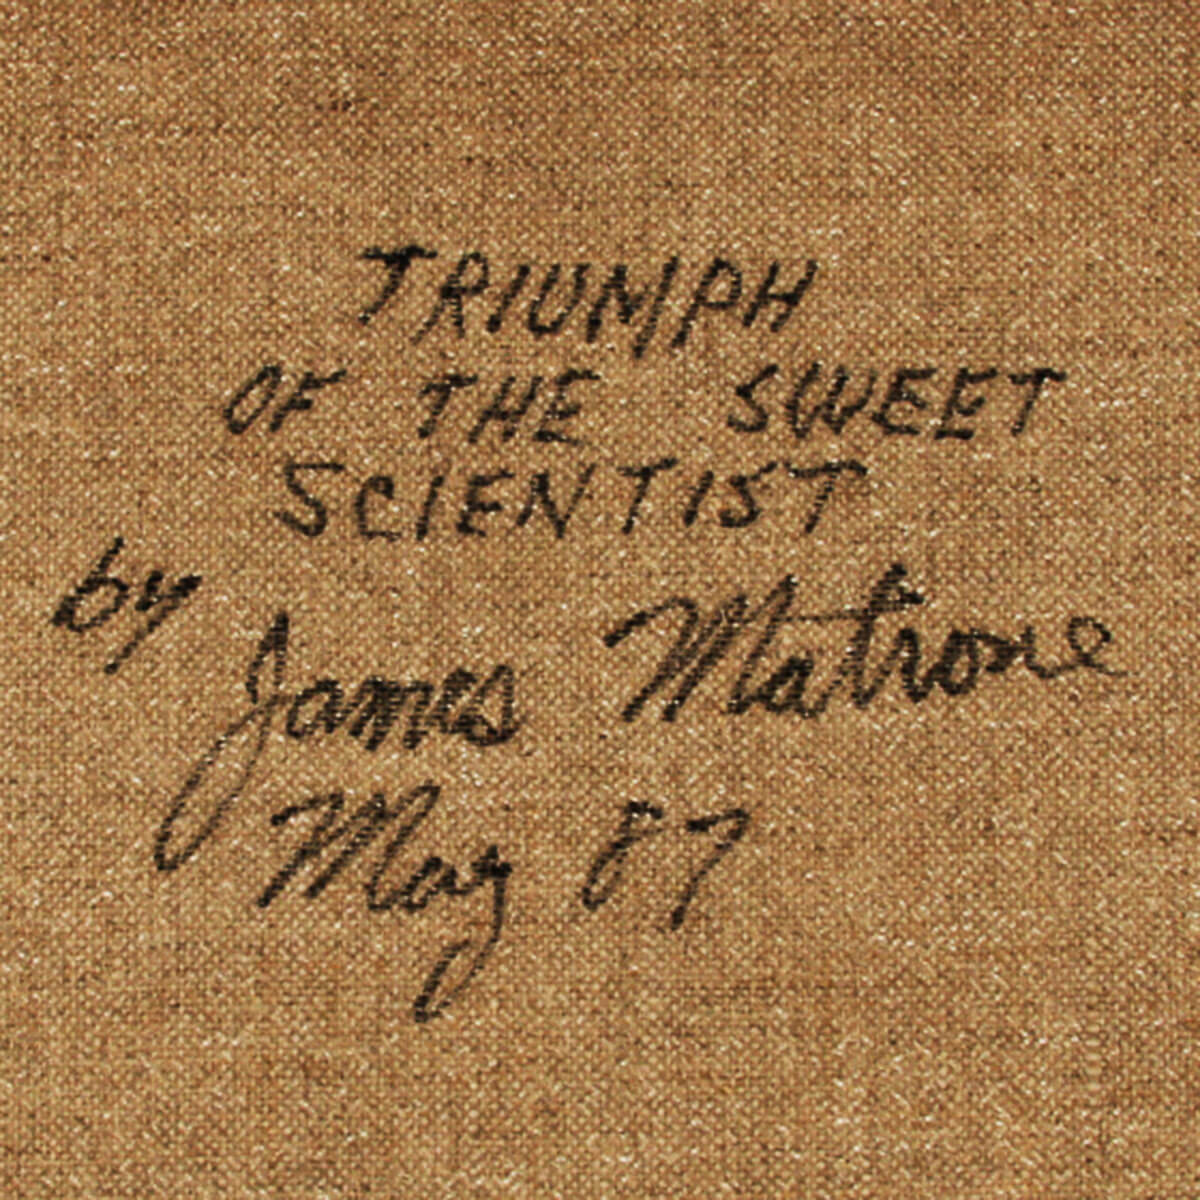 TRIUMPH
OF THE SWEET
SCIENTIST
by James Matrone
May 87